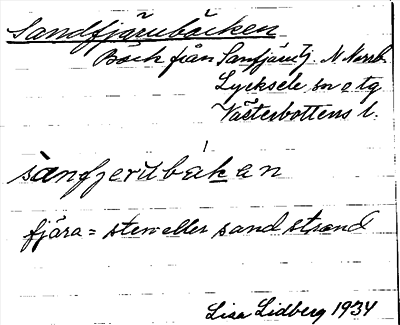 Sandfjärubäcken
Bäck från Sanfjärutj.
Lycksele sn o tg
Västerbottens l.
sànfjerúbäkan
fjära = sten eller sand strand
Lisa Lidberg 1934